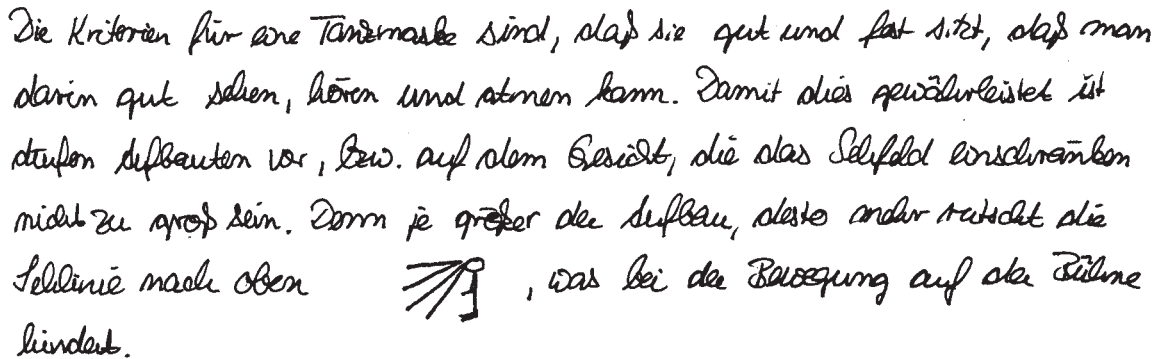 Die Kriterien für eine Tanzmaske sind, daß sie gut und fest sitzt, daß man
darin gut sehen, hören und atmen kann. Damit dies gewährleistet ist
dürfen Aufbauten vor, bzw. auf dem Gesicht, die das Sehfeld einschränken
nicht zu groß sein. Denn je größer der Aufbau, desto mehr rutscht die
Sehlinie nach oben , was bei der Bewegung auf der Bühne
hindert.